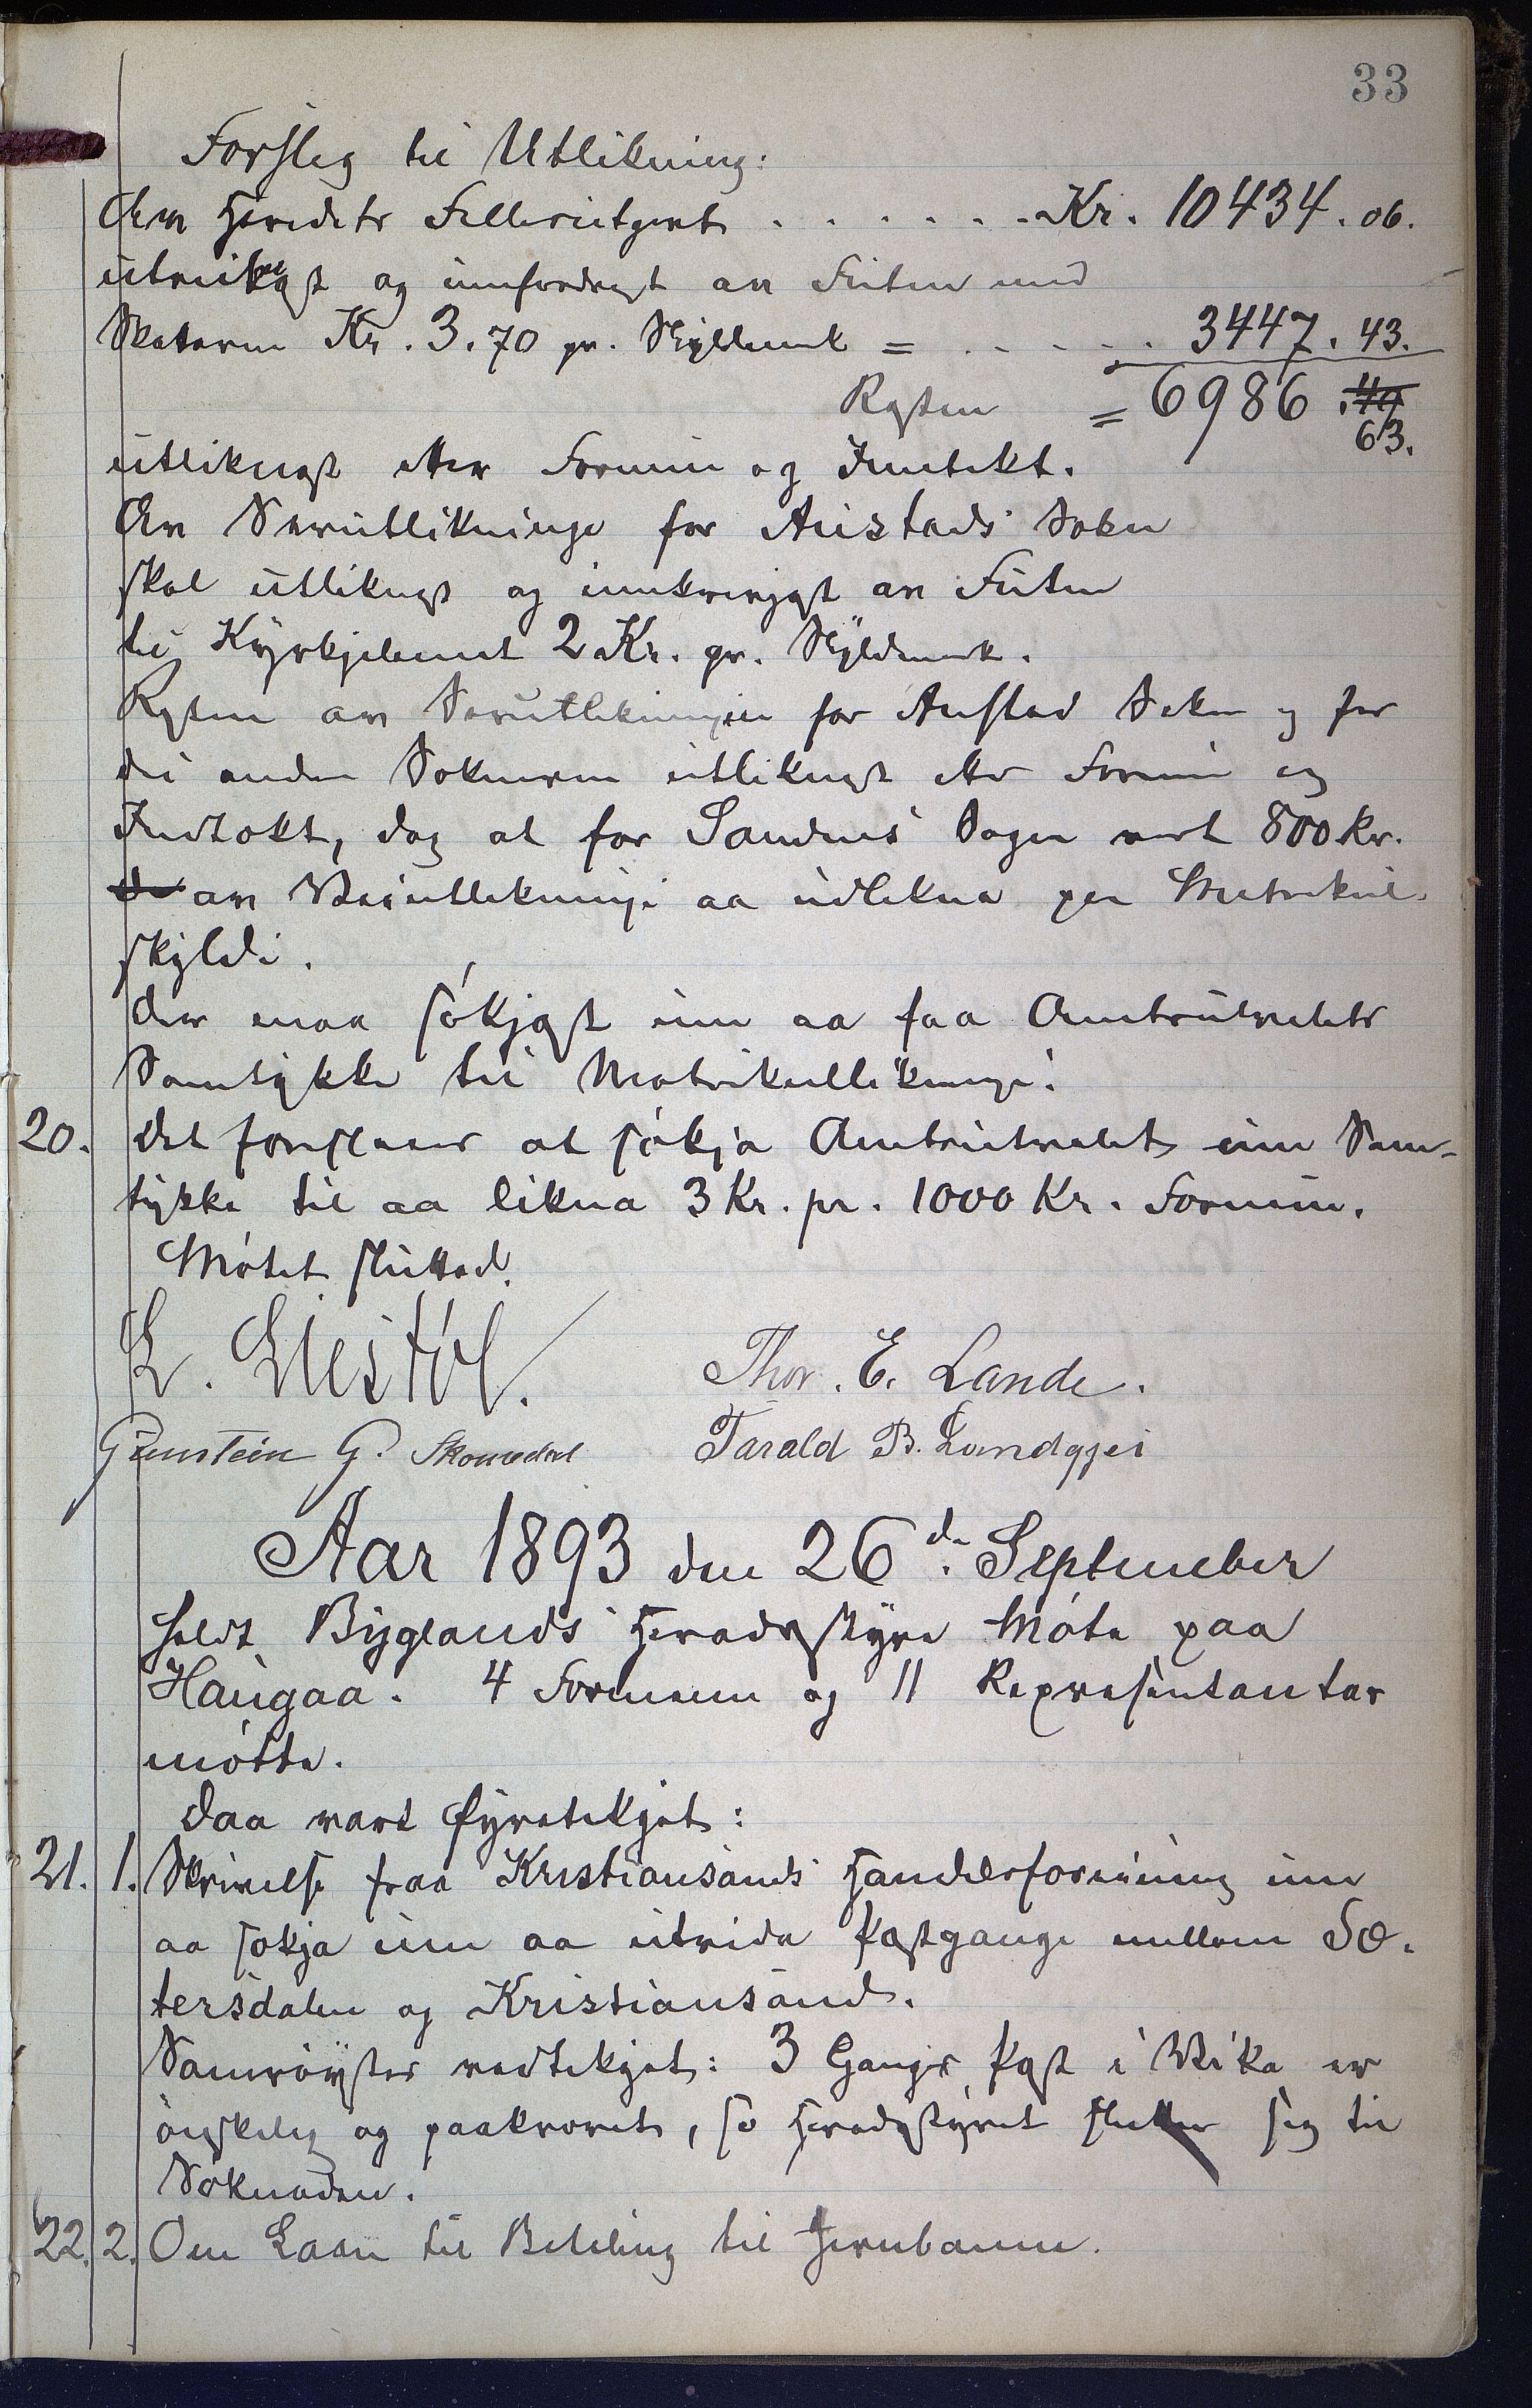 33
Forslag til Utlikning:
Av Heradets Fellesutgift . . . . . . . Kr. 10434.06.
utreiknast og innfordrast av Futen med
Skatarne Kr. 3.70 pr. Skyldmark = . . . . . 3447.43.
Resten = 6986.49
63.
utliknast etter Formue og Inntekt.
Av Serutlikningi for Austads Sokn
skal utliknast og innkrevjast av Futen
til Kyrkjelemt 2 Kr. pr. Skyldmark.
Resten av Serutlikningi for Austad Sokn og for
dei andre Soknerne utliknast etter Formue og
Indtekt, dog at for Sandnes Sogn vert 800 Kr.
av Veiutlikningi aa udlikna paa Matrikul-
skyldi.
Der maa søkjast um aa faa Amtsutvalets
Samtykke til Matrikullikningi.
20. Det foreslaaes at søkja Amtsutvalet um Sam-
tykke til aa likna 3 Kr. pr. 1000 Kr. Formue.
Møtet sluttad.
L. Liestøl. Thor. E. Lande.
Gunstein G. Skomedal Tarald B. Landgjei
Aar 1893 den 26de September
heldt Byglands Heradsstyre Møte paa
Haugaa. 4 Formenn og 11 Representantar
møtte.
Daa vart fyretekjet:
21. 1. Skrivelse fraa Kristiansands Handelsforening um
aa søkja um aa utvida Postgangi millom Sæ-
tersdalen og Kristiansand.
Samrøystes vedtekjet: 3 Gangjer Post i Vika er
ønskeleg og paakravet, so Heradsstyret slutter seg til
Søknaden.
22. 2. Om Laan til Beteling til Jernbanen.